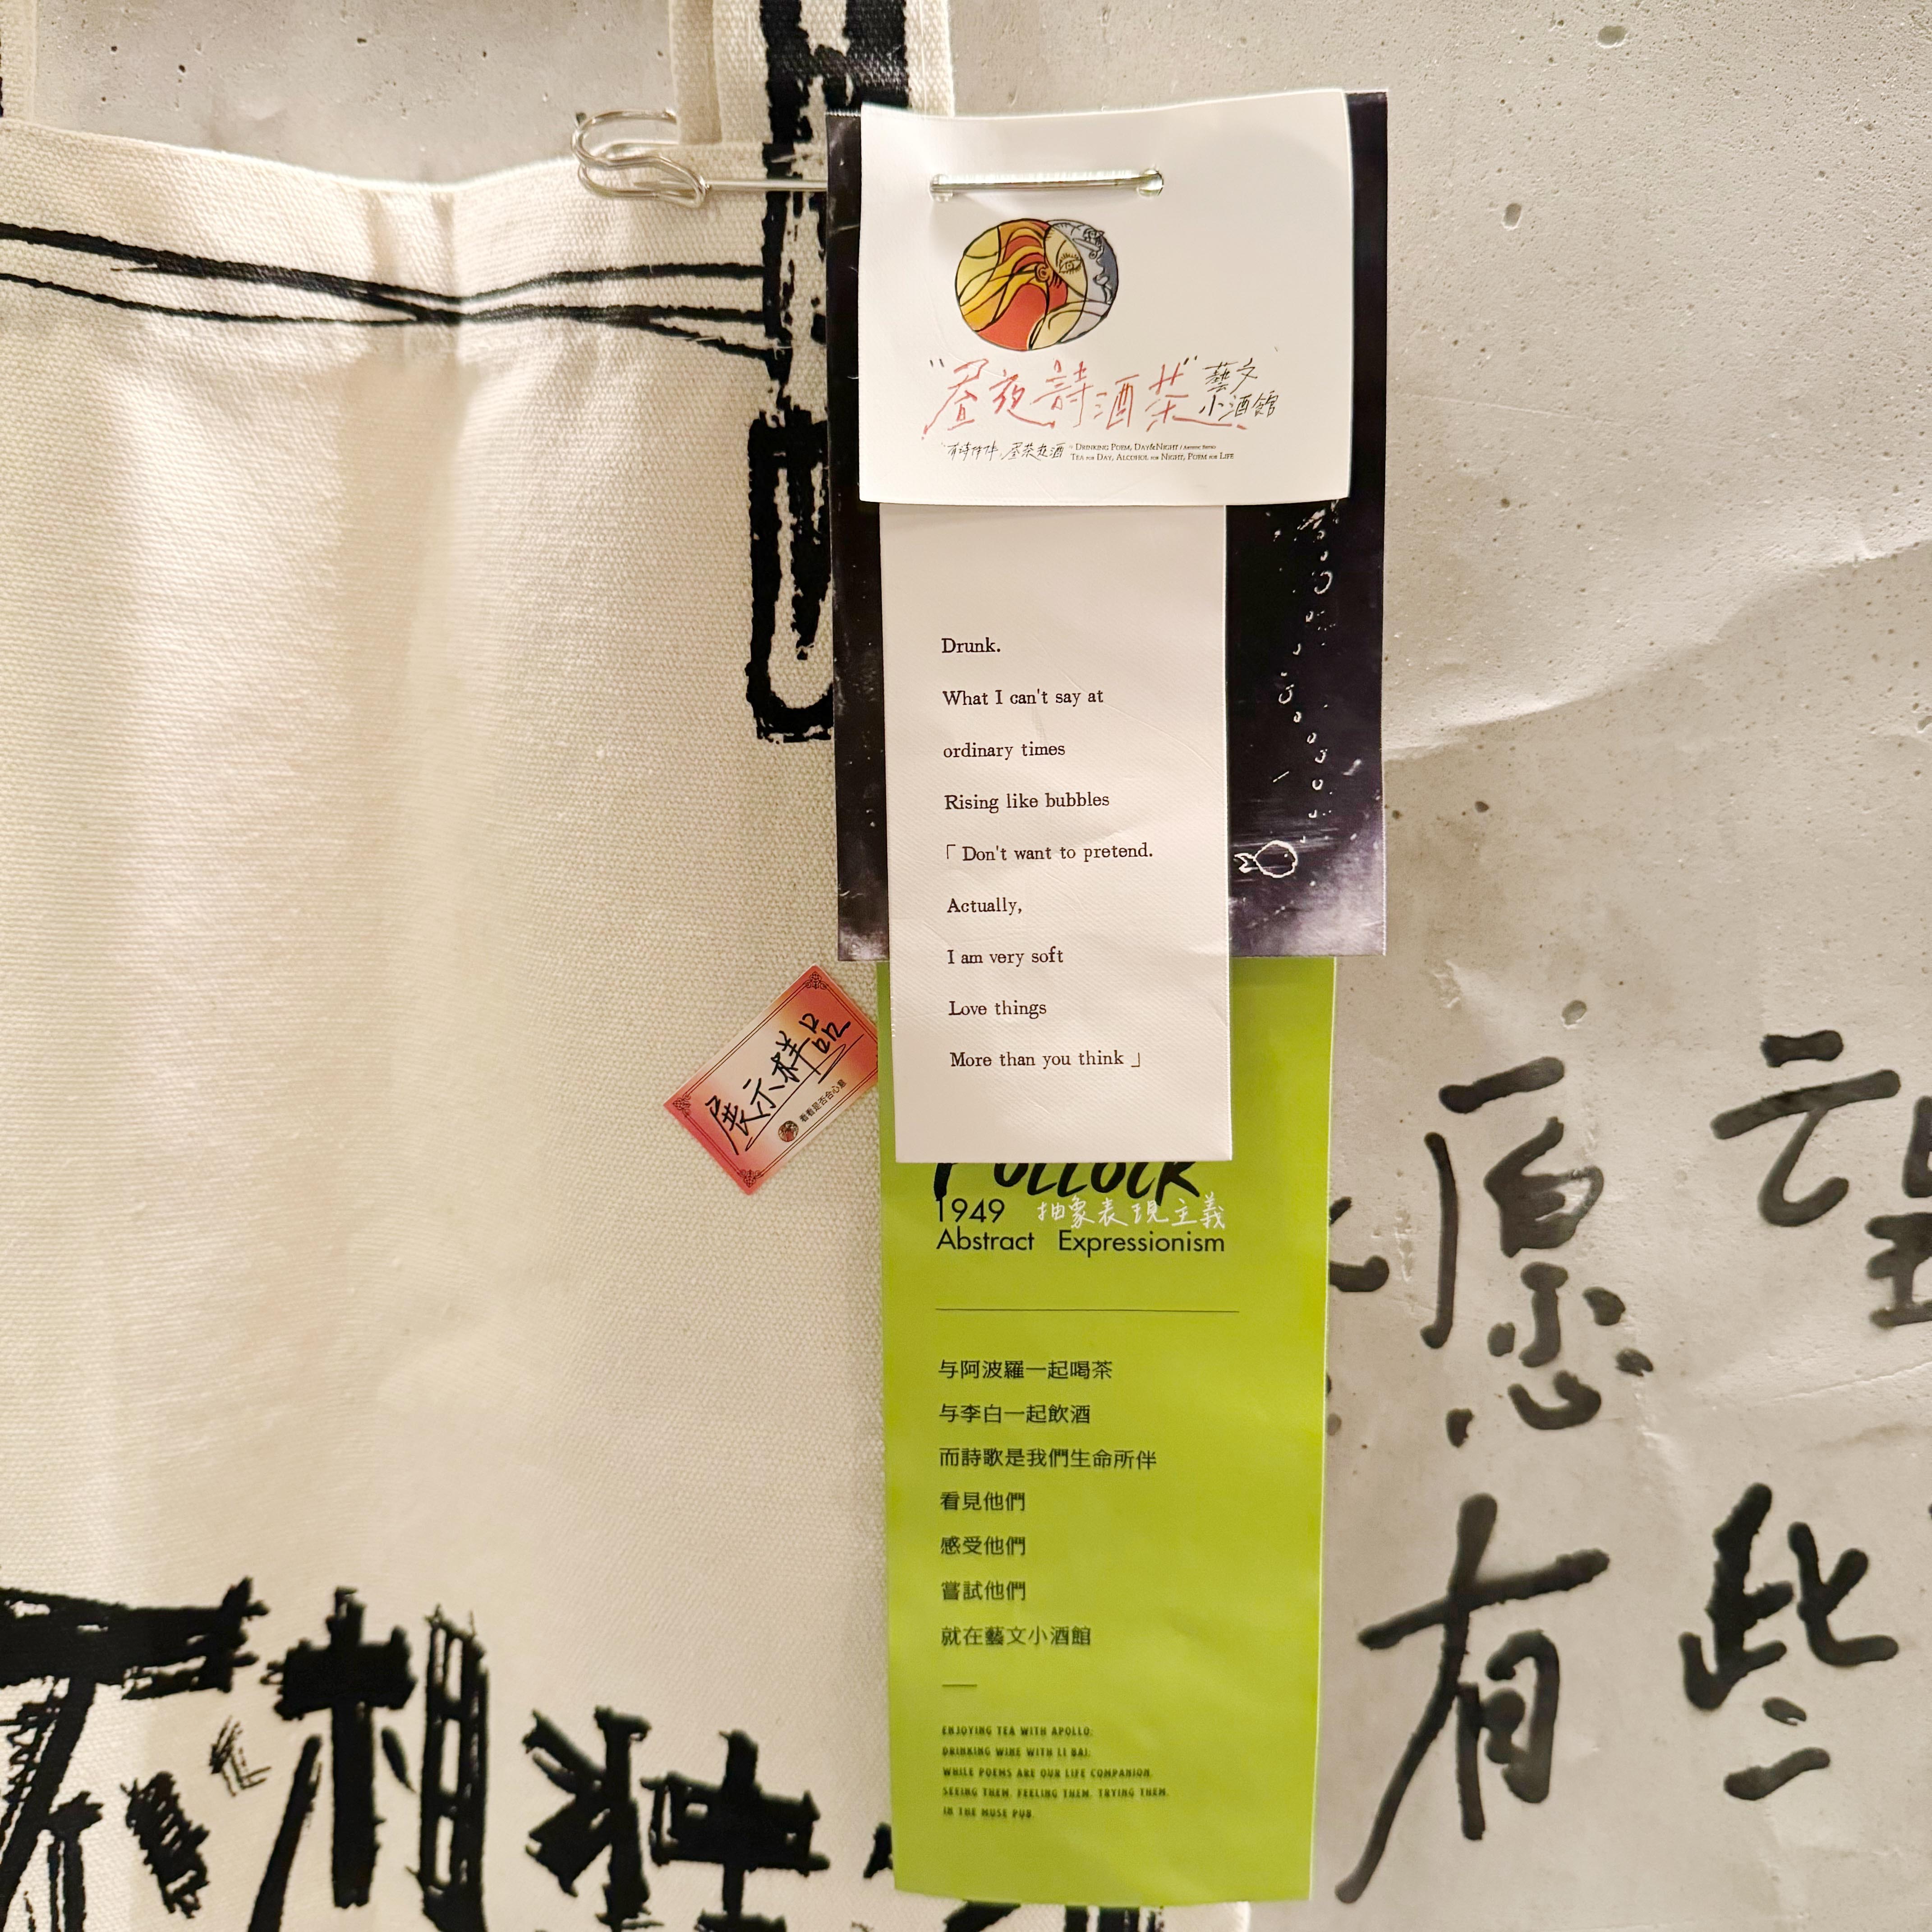 "昼夜詩酒茶"藝文
小酒館
DRINKING POEM, DAY&NIGHT
TEA FOR DAY, ALCOHOL FOR NIGHT, POEM FOR LIFE
Drunk.
What I can't say at
ordinary times
Rising like bubbles
「Don't want to pretend.
Actually,
I am very soft
Love things
More than you think」
展示样品
看看是否合心意
POLLOCK
1949 抽象表現主義
Abstract Expressionism
与阿波羅一起喝茶
与李白一起飲酒
而詩歌是我們生命所伴
看見他們
感受他們
嘗試他們
就在藝文小酒館
ENJOYING TEA WITH APOLLO;
DRINKING WINE WITH LI BAI.
WHILE POEMS ARE OUR LIFE COMPANION.
SEEING THEM. FEELING THEM. TRYING THEM.
IN THE MUSE PUB.
愿 望
有 些
不相